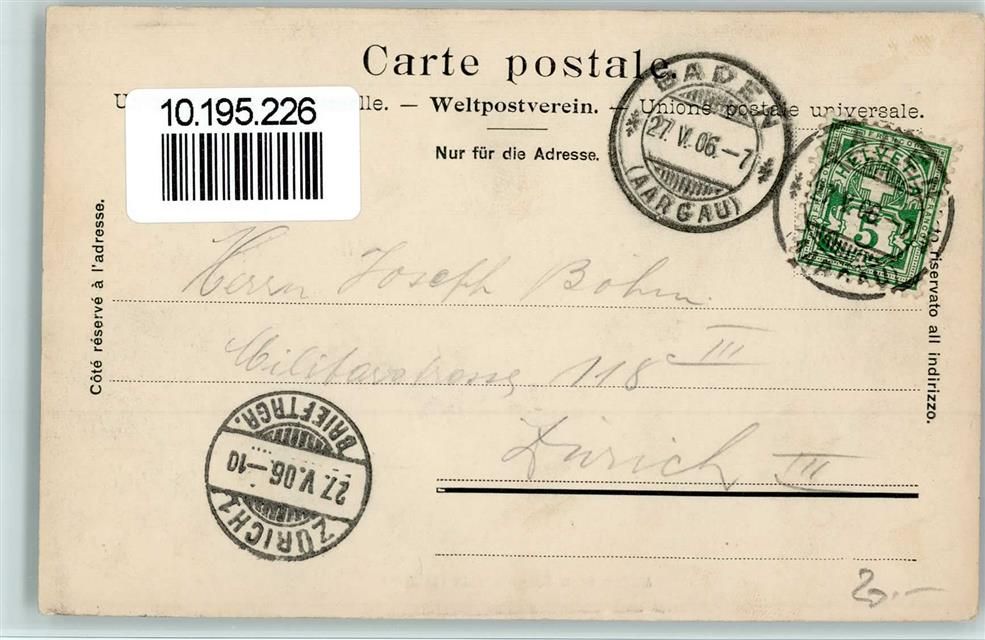 Carte postale.
10.195.226
U lle. — Weltpostverein. — Unione postale universale.
Nur für die Adresse.
BADEN
27. V. 06. - 7
(AARGAU)
HELVETIA
5
Côté réservé à l'adresse.
to riservato all indirizzo.
Herrn Joseph Böhm
Militärstrasse 118 III
Zürich III
BRIEFTRGR.
27. V. 06. - 10
ZÜRICH 1
20.-